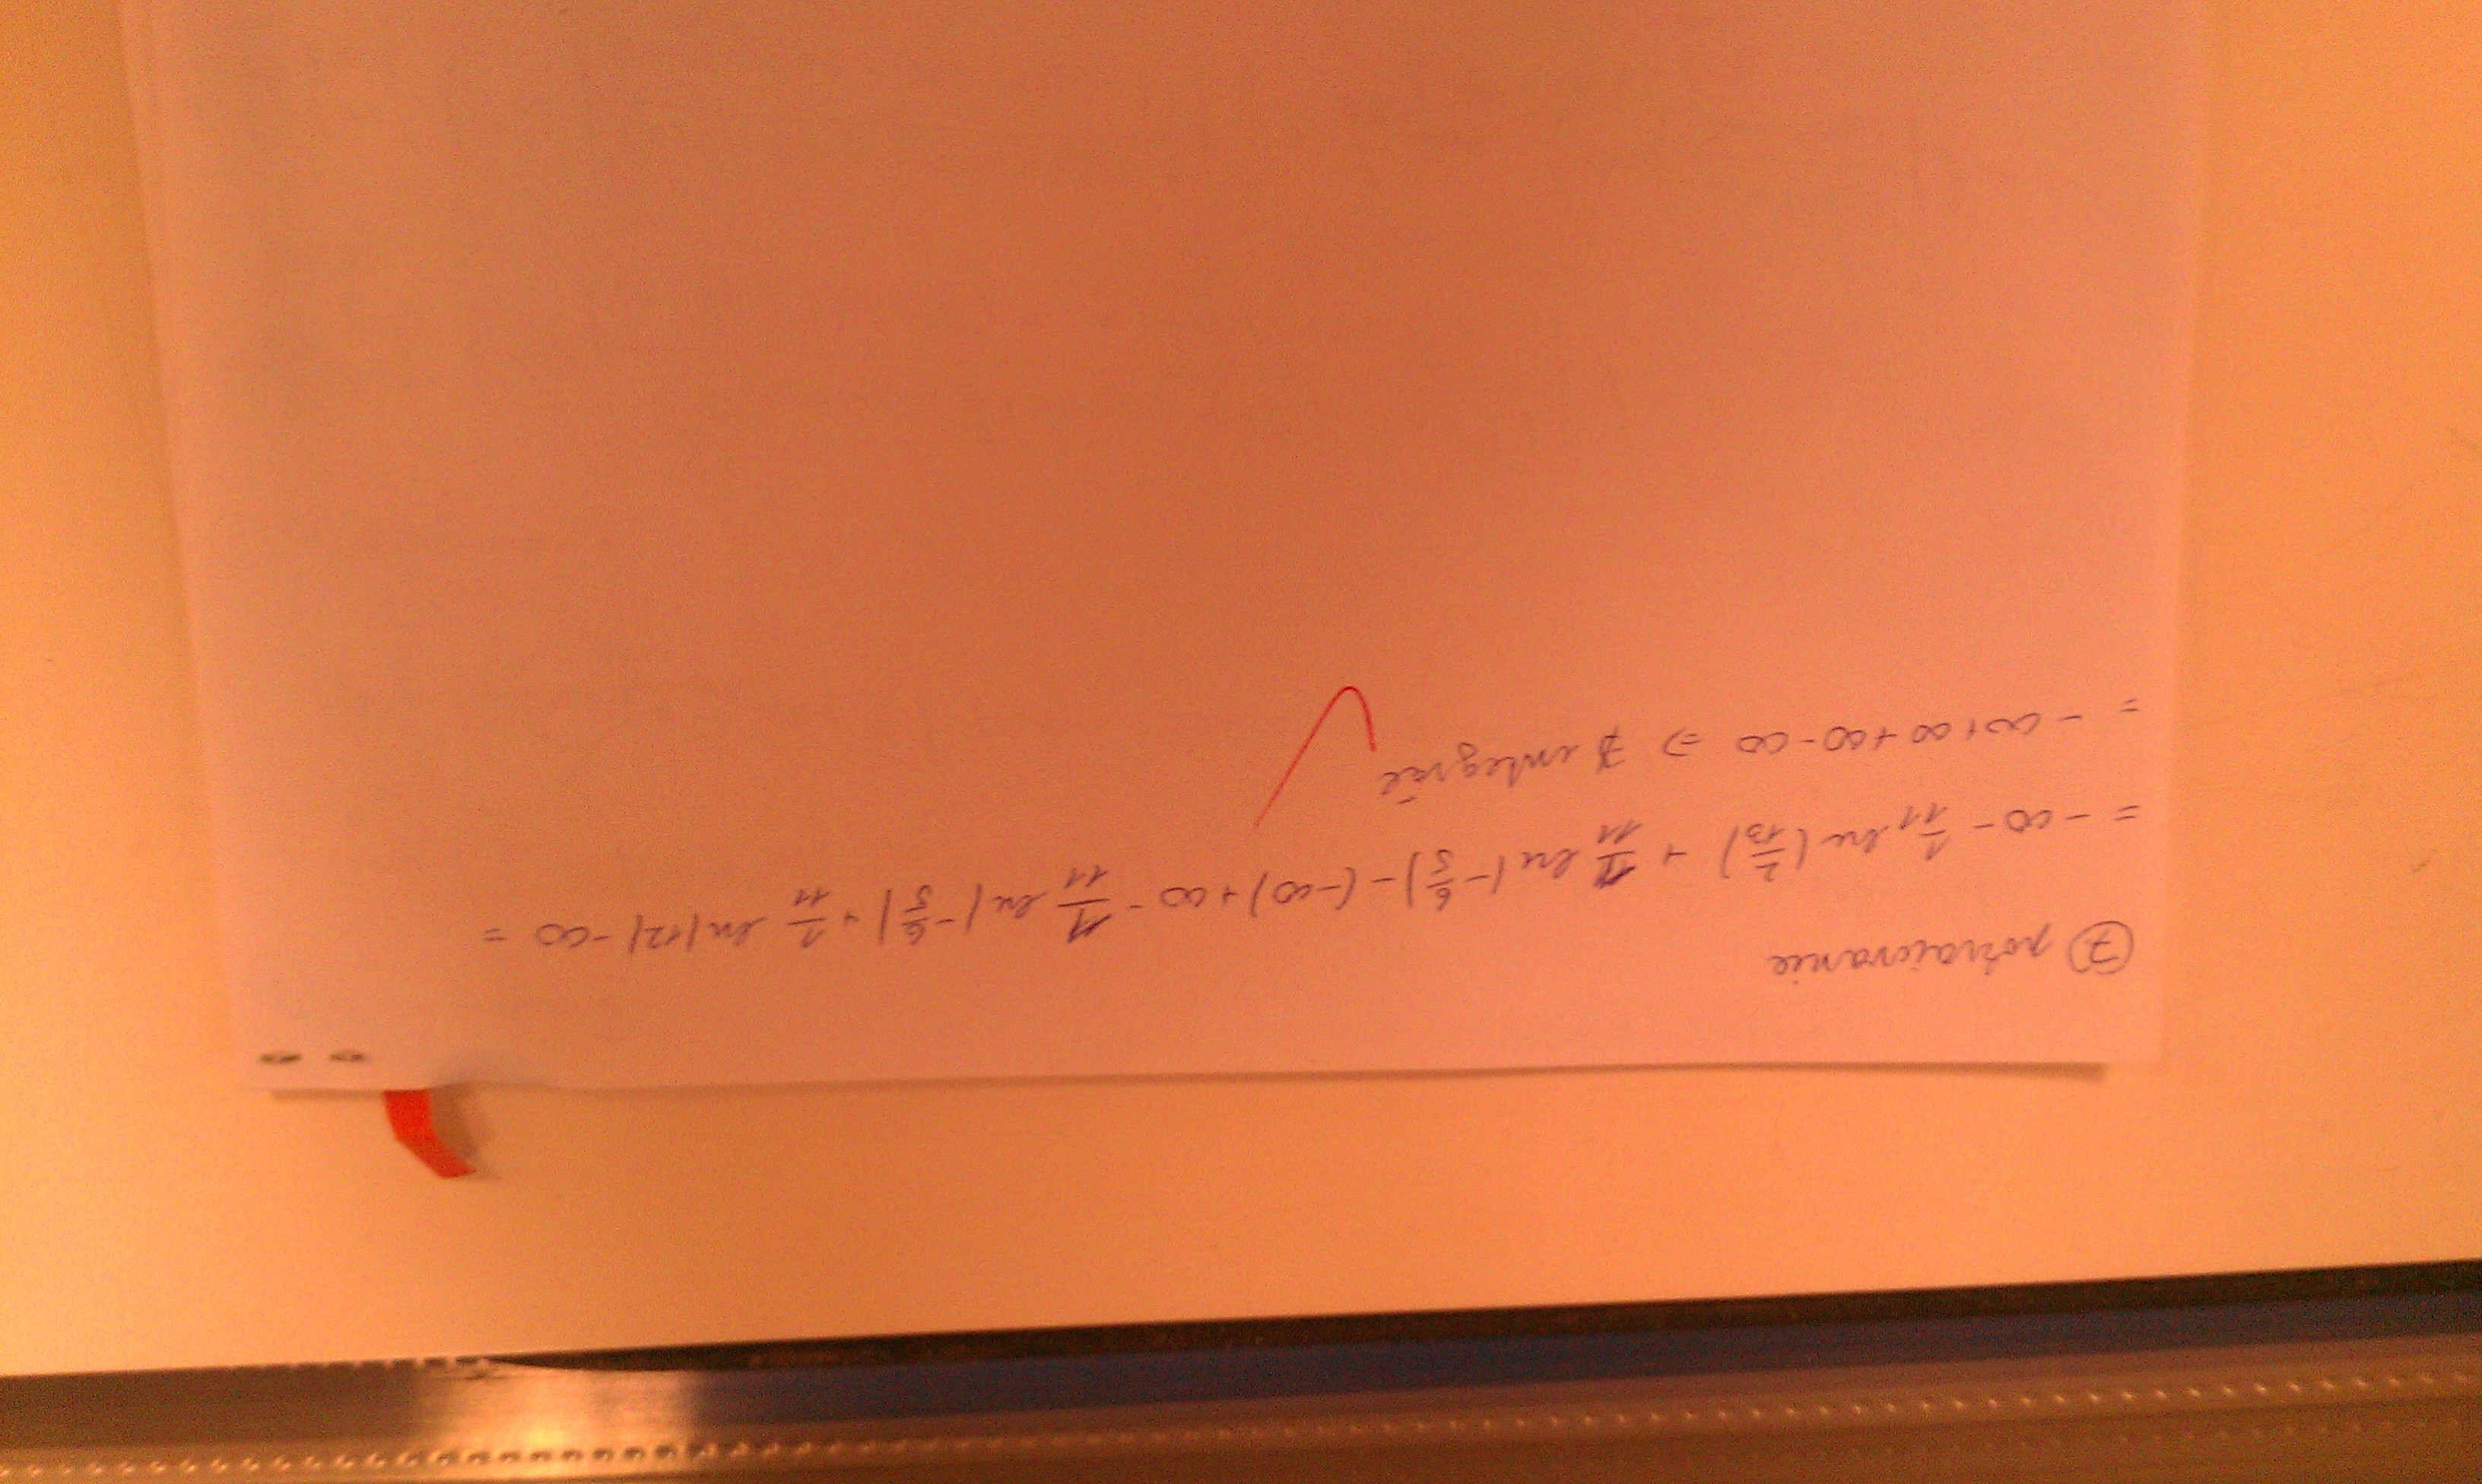 ⑦ pokračovanie
= -∞ - 1/11 ln(2/13) + 1/11 ln|-6/5| - (-∞) + ∞ - 1/11 ln|-6/5| + 1/11 ln|12| - ∞ =
= -∞ + ∞ + ∞ - ∞ ⇒ ∄ integrál